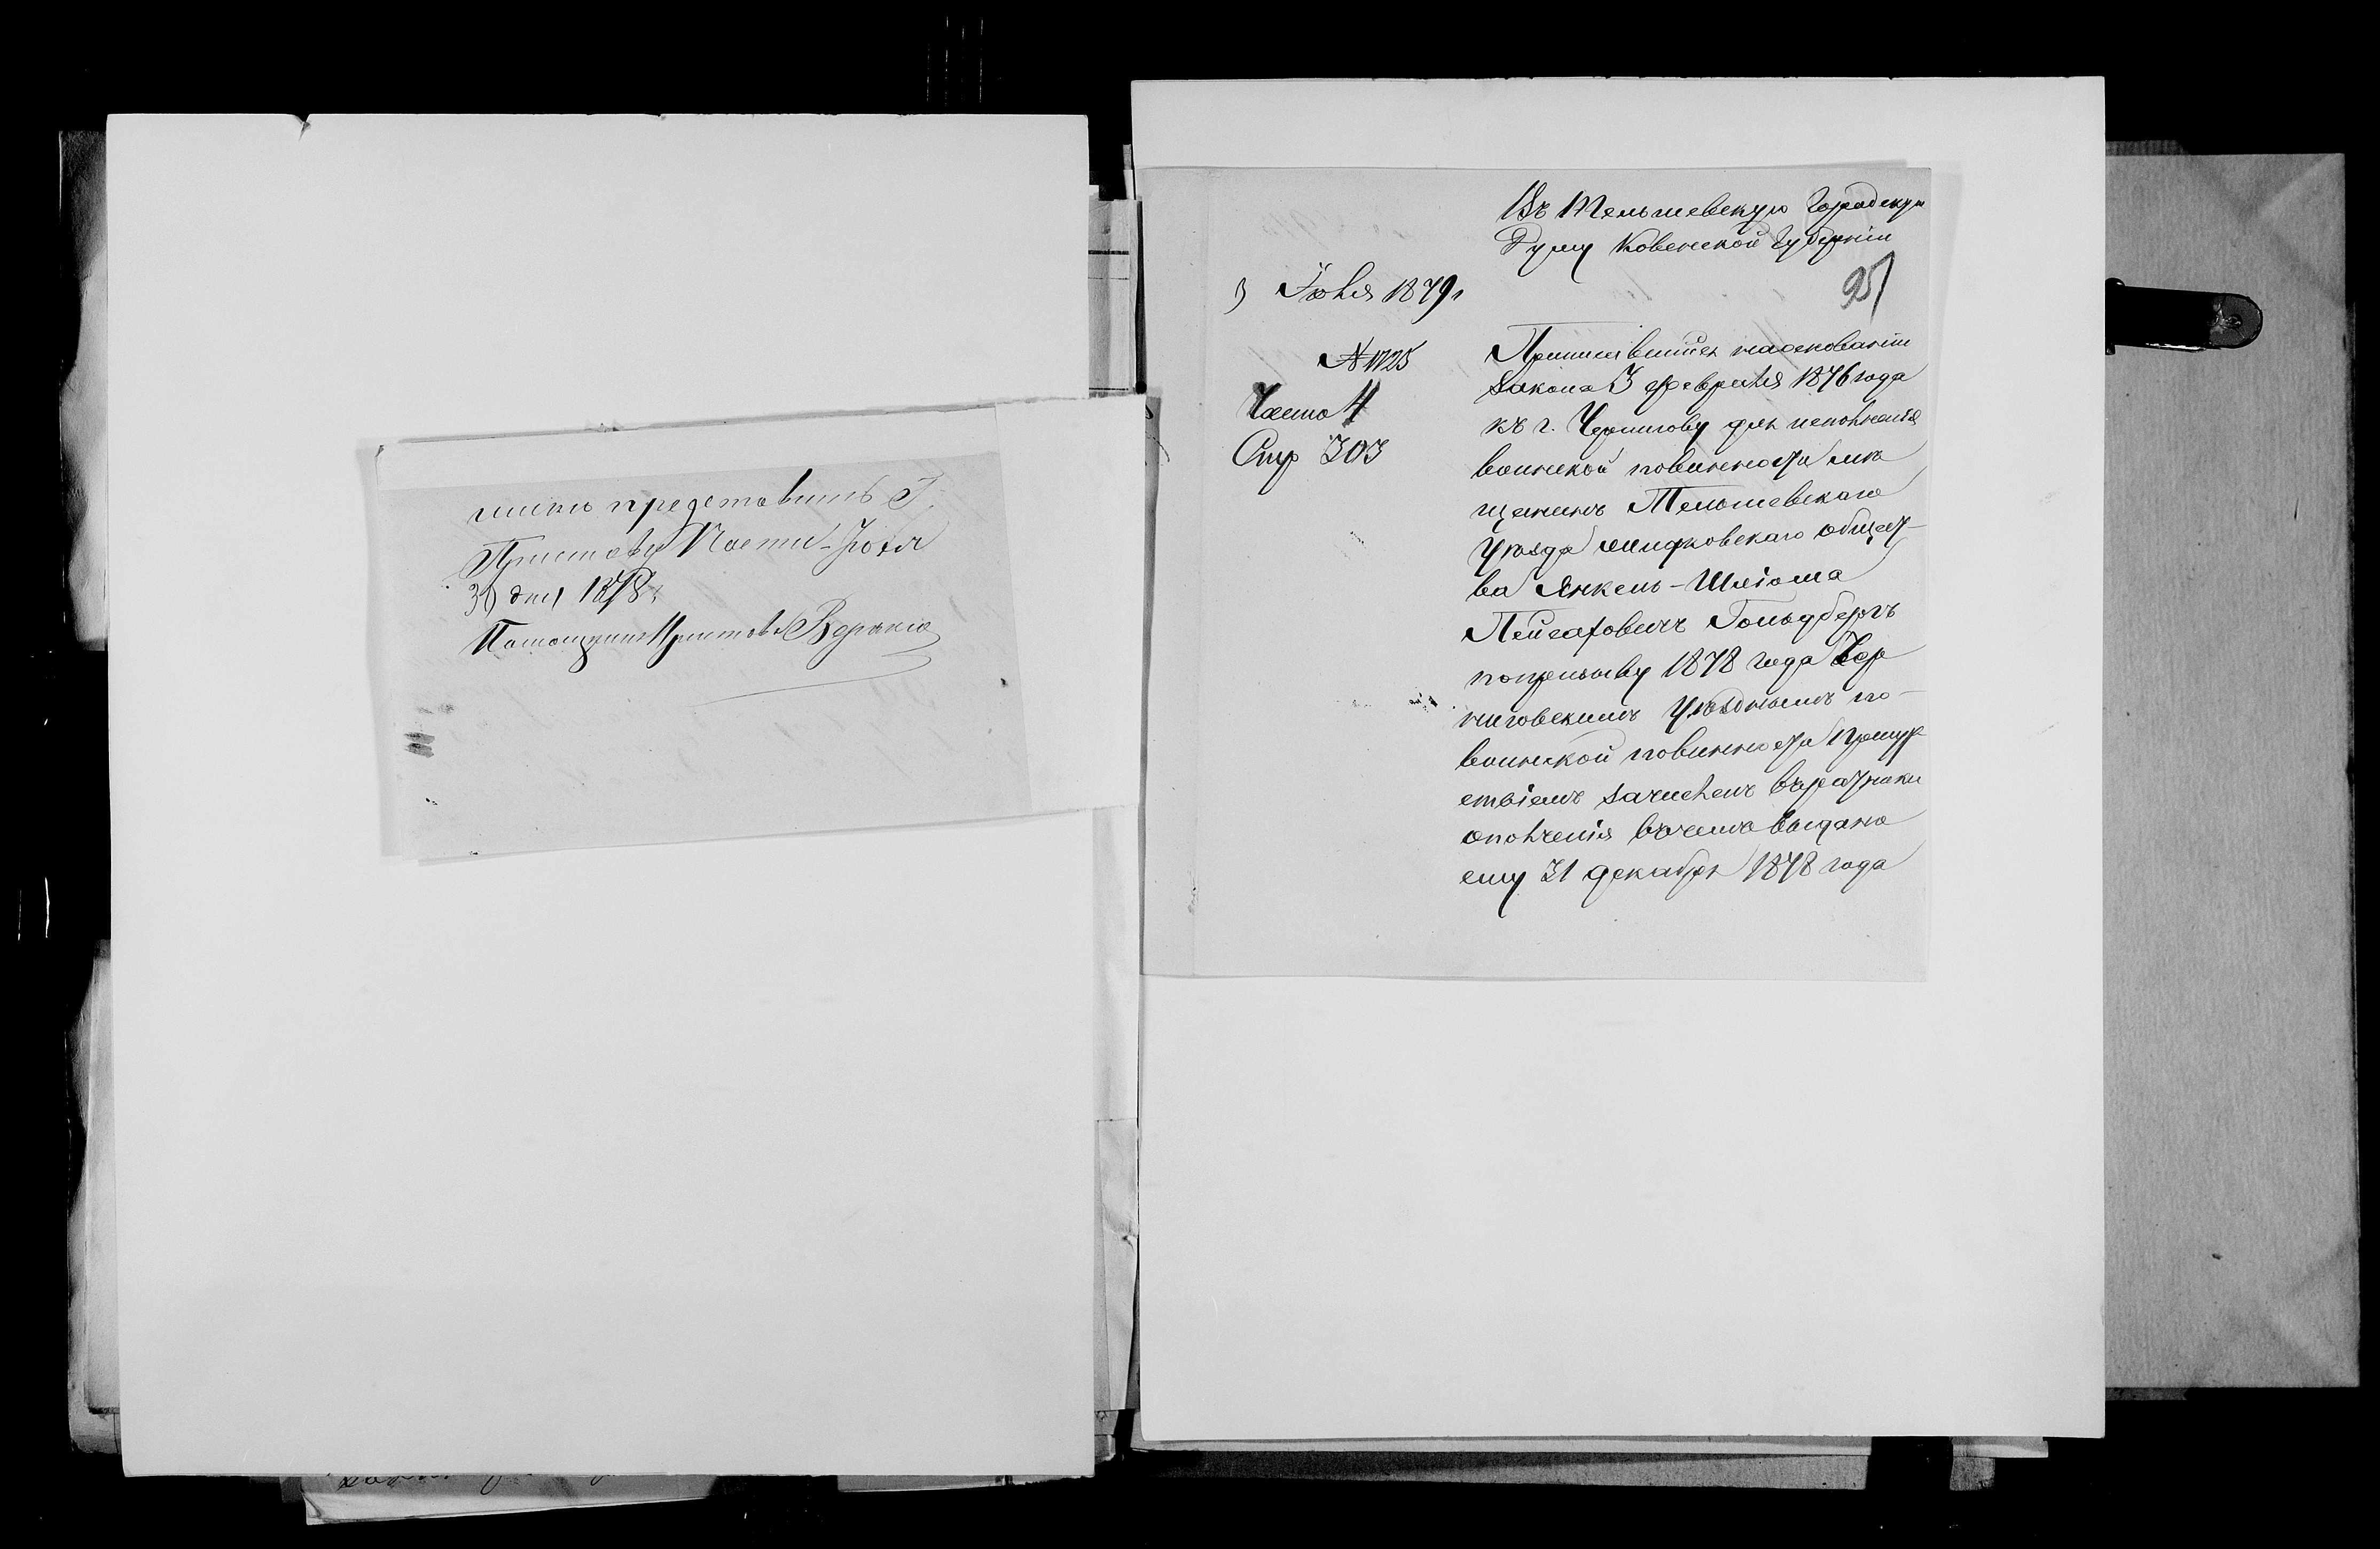 представить Г.
Приставу Части. Юля
30 дня 1878
Помощник Пристава
Въ Тельшевскую Городскую
Думу Ковенской Губерніи
95
3 Іюля 1879 г
№ 1725
Часть 4
Стр 303
Приписавшійся наоснованіи
Закона 3 февраля 1876 года
къ г. Чернигову для исполненія
воинской повинности мѣ
щанинъ Тельшевскаго
Уѣзда общест-
ва Янкель-Шліома
Пейсаховичъ Гольдбергъ
попризыву 1878 года Чер
ниговскимъ Уѣзднымъ по-
воинской повинности Присут
ствіемъ зачисленъ вратники
ополченія вочемъ выдано
ему 31 декабря 1878 года